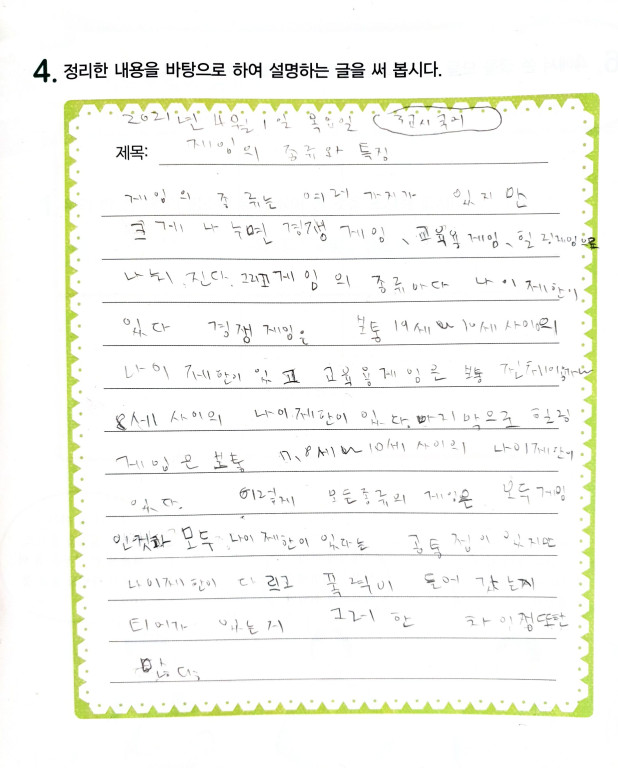 4. 정리한 내용을 바탕으로 하여 설명하는 글을 써 봅시다.
2021년 4월 1일 목요일 교시 국어
제목: 게임의 종류와 특징
게임의 종류는 여러 가지가 있지만
크게 나누면 경쟁 게임, 교육용 게임, 힐링게임으로
나눠 진다. 그리고 게임의 종류마다 나이 제한이
있다 경쟁 게임은 보통 19세~10세 사이의
나이 제한이 있고 교육용게임은 보통 전체이용가나
8세 사이의 나이제한이 있다. 마지막으로 힐링
게임은 보통 7, 8세~10세 사이의 나이제한이
있다. 이렇게 모든종류의 게임은 모두 게임
인것과 모두 나이 제한이 있다는 공통점이 있지만
나이제한이 다르고 폭력이 들어 갔는지
티어가 있는지 그러한 차이점또한
많다.